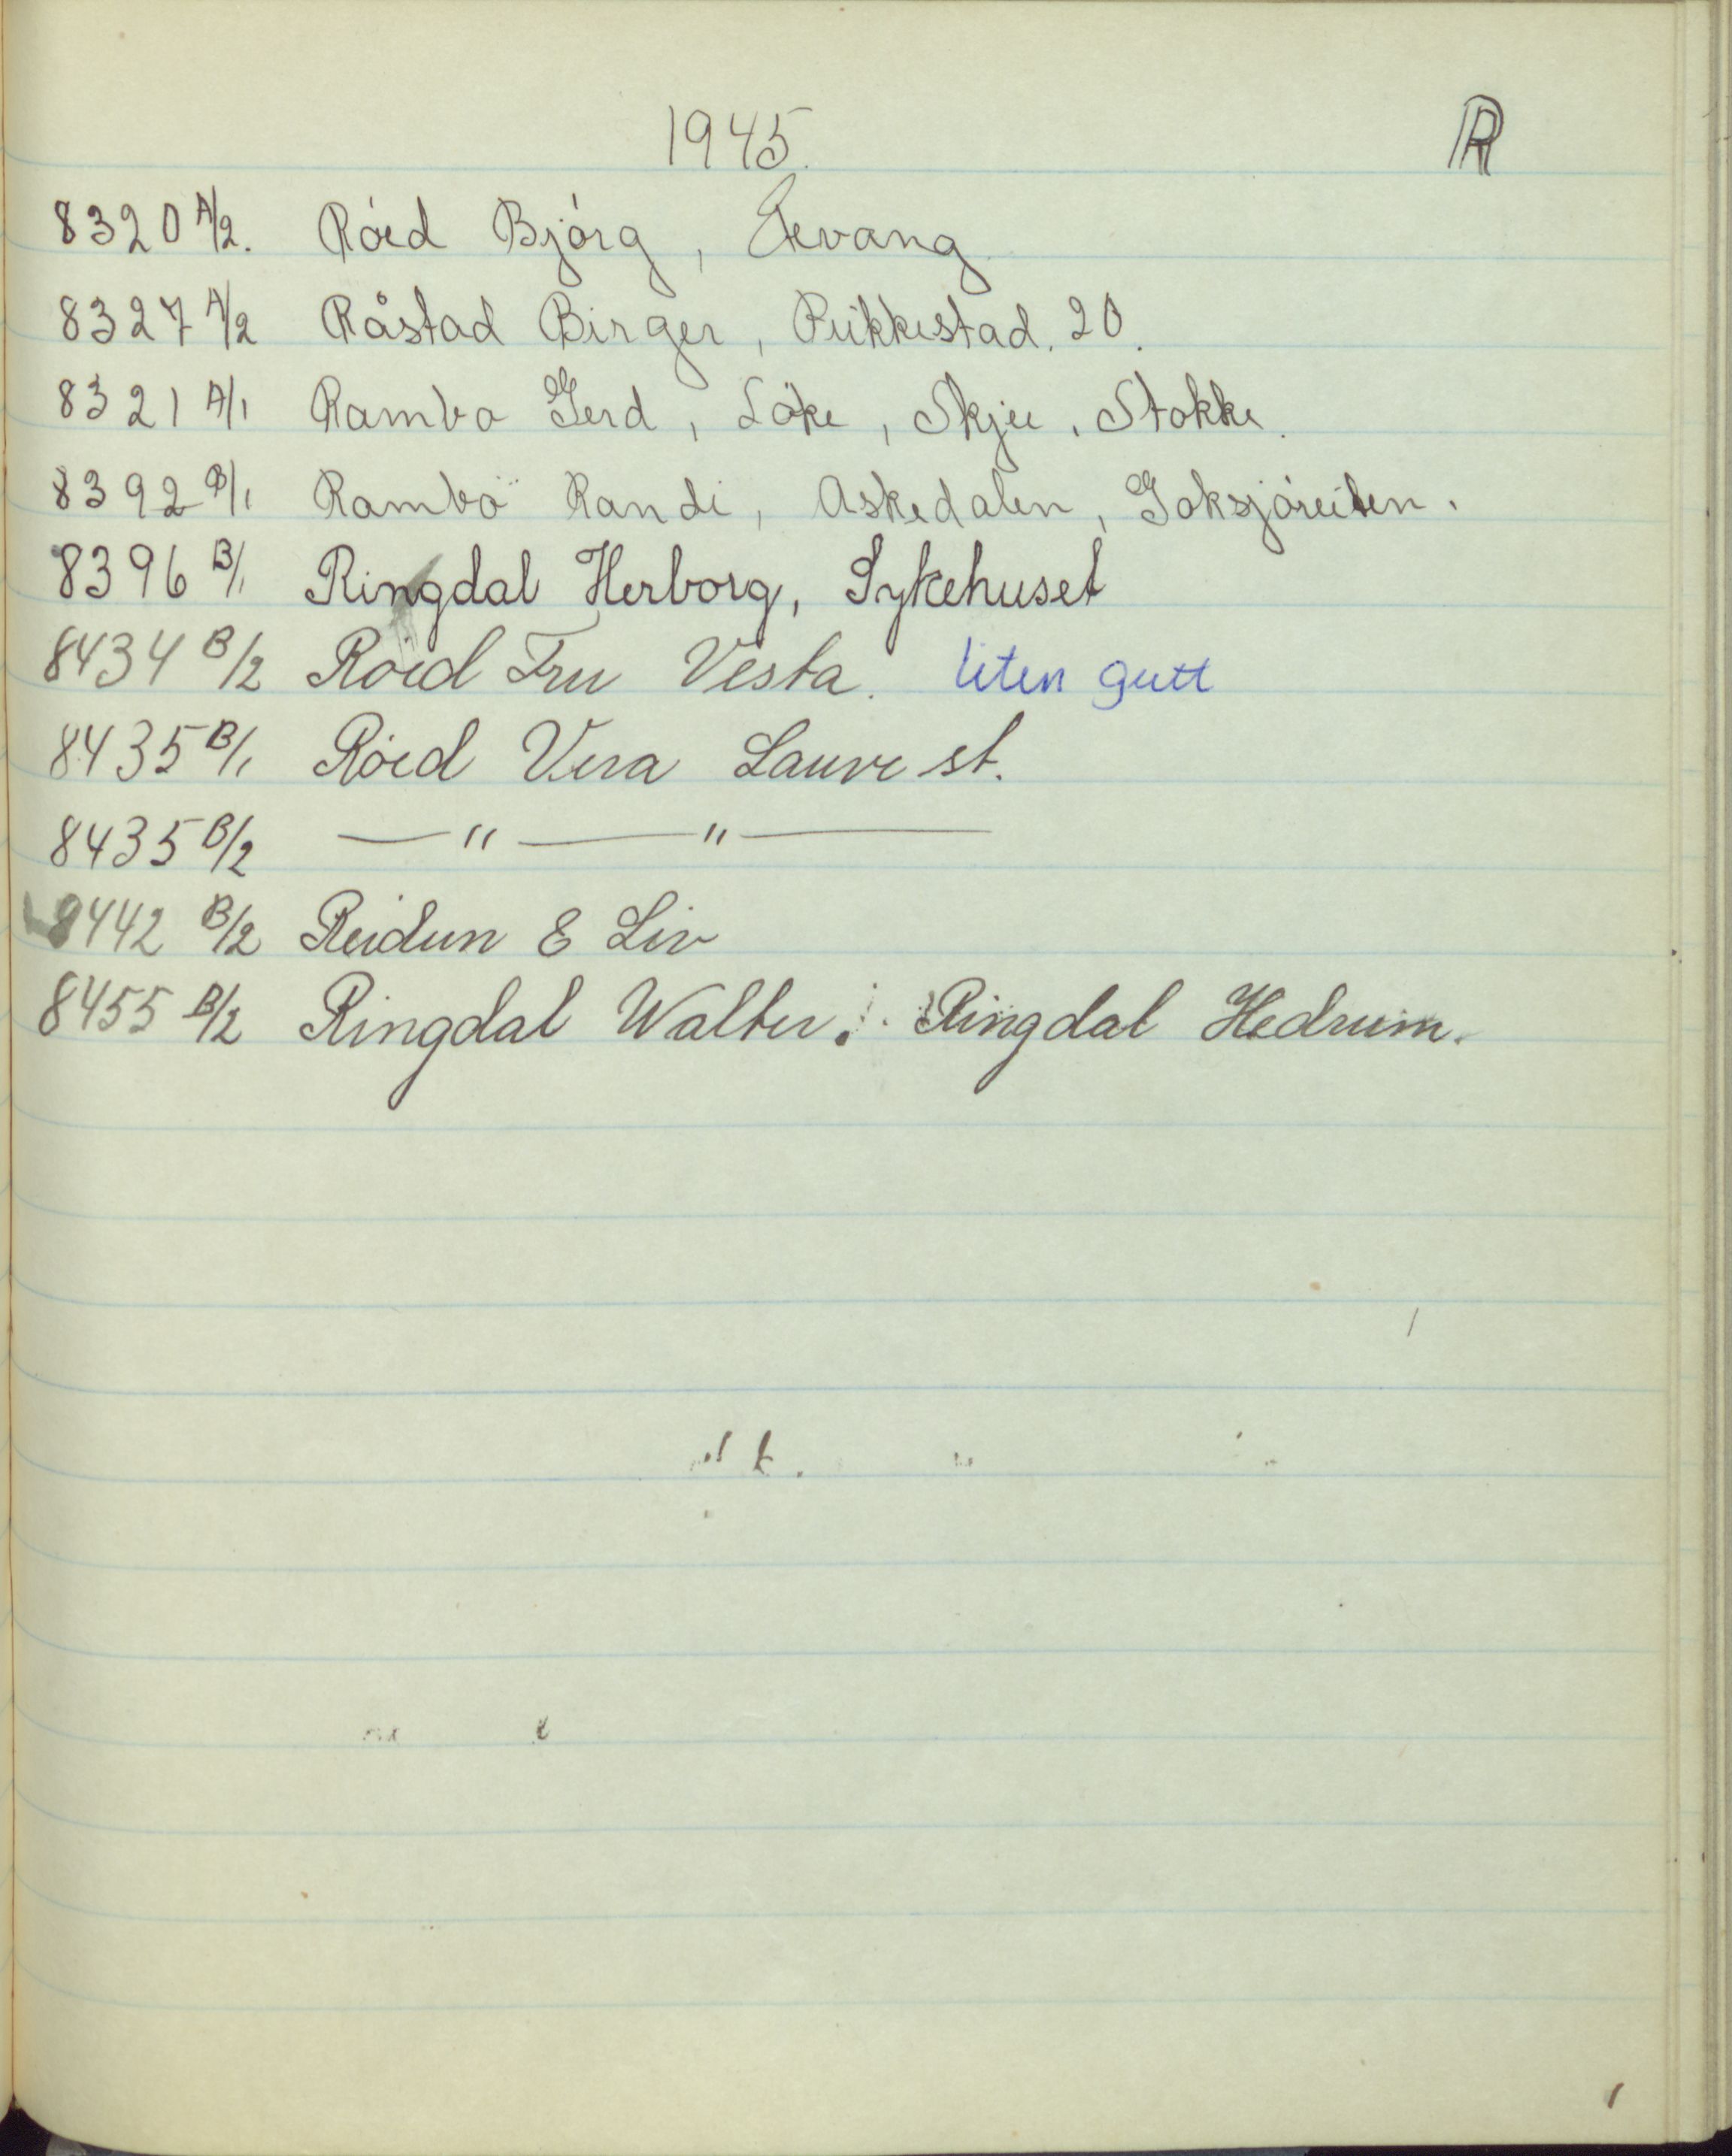 1945. R
8320 A/2. Röed Björg, Gevang
8327 A/2 Råstad Birger, Pukkestad. 20.
8321 A/1 Rambo Gerd, Löke, Skjee, Stokke.
8392 B/1 Rambö Randi, Askedalen, Goksjöreiten.
8396 B/1 Ringdal Herborg, Sykehuset
8434 B/2 Röed Fru Vesta. liten gutt
8435 B/1 Röed Vera Lauve st.
8435 B/2 —"——"——
8442 B/2 Reidun & Liv
8455 B/2 Ringdal Walter. Ringdal Hedrum.